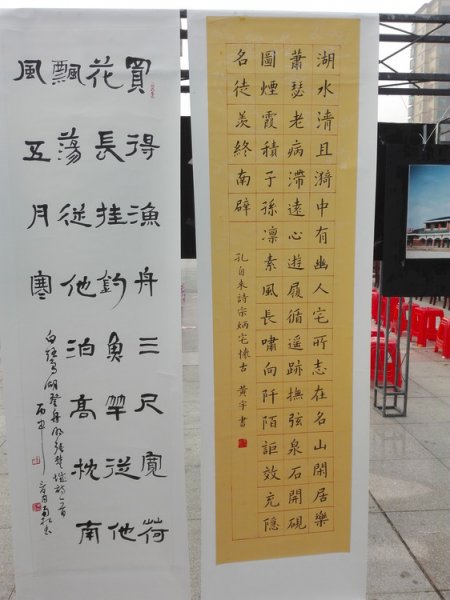 湖水清且漪中有幽人宅所志在名山閑居樂
蕭瑟老病滯遠心遊履循遥跡撫弦泉石開硯
圖煙霞積子孫凛素風長嘯向阡陌詎效充隱
名徒羨終南辟
孔自来詩宗炳宅懷古 黄宇書
買得漁舟三尺寬荷
花長挂釣魚竿從他
飄蕩從他泊高枕南
風五月寒